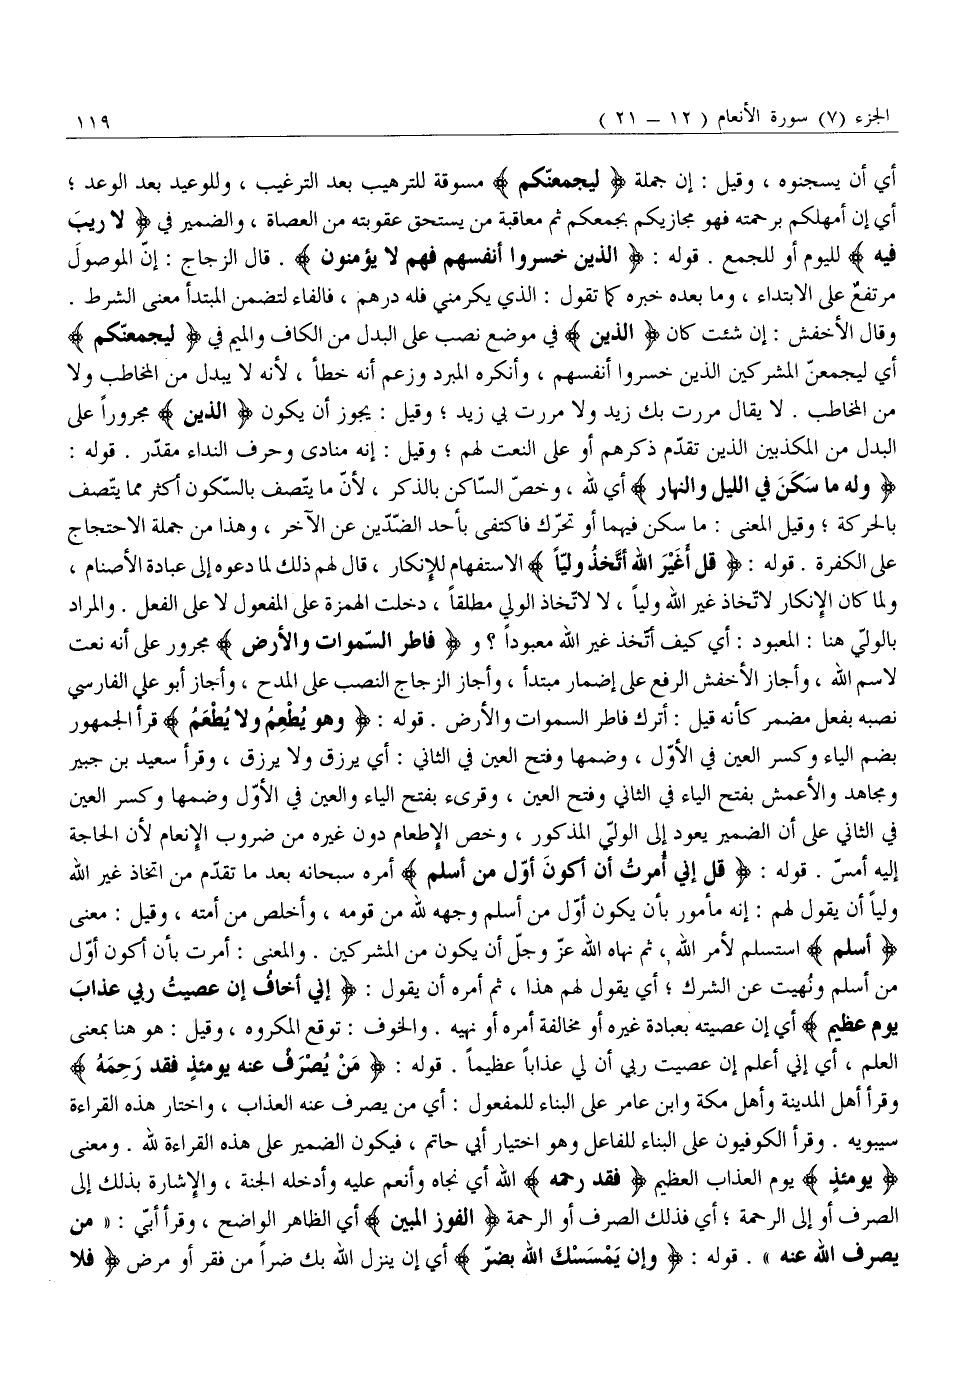 الجزء (٧) سورة الأنعام ( ١٢ – ٢١ ) ١١٩
أي أن يسجنوه ، وقيل : إن جملة ﴿ ليجمعنّكم ﴾ مسوقة للترهيب بعد الترغيب ، وللوعيد بعد الوعد ؛
أي إن أمهلكم برحمته فهو مجازيكم بجمعكم ثم معاقبة من يستحق عقوبته من العصاة ، والضمير في ﴿ لا ريبَ
فيه ﴾ لليوم أو للجمع . قوله : ﴿ الذين خسروا أنفسهم فهم لا يؤمنون ﴾ . قال الزجاج : إنّ الموصولَ
مرتفعٌ على الابتداء ، وما بعده خبره كما تقول : الذي يكرمني فله درهم ، فالفاء لتضمن المبتدأ معنى الشرط .
وقال الأخفش : إن شئت كان ﴿ الذين ﴾ في موضع نصب على البدل من الكاف والميم في ﴿ ليجمعنّكم ﴾
أي ليجمعنّ المشركين الذين خسروا أنفسهم ، وأنكره المبرد وزعم أنه خطأ ، لأنه لا يبدل من المخاطب ولا
من المخاطب . لا يقال مررت بك زيد ولا مررت بي زيد ؛ وقيل : يجوز أن يكون ﴿ الذين ﴾ مجروراً على
البدل من المكذبين الذين تقدّم ذكرهم أو على النعت لهم ؛ وقيل : إنه منادى وحرف النداء مقدّر . قوله :
﴿ وله ما سَكَنَ في الليل والنهار ﴾ أي لله ، وخصّ السّاكن بالذكر ، لأنّ ما يتّصف بالسّكون أكثر مما يتّصف
بالحركة ؛ وقيل المعنى : ما سكن فيهما أو تحرّك فاكتفى بأحد الضّدّين عن الآخر ، وهذا من جملة الاحتجاج
على الكفرة . قوله : ﴿ قل أَغَيْرَ الله أتَّخذُ وليّاً ﴾ الاستفهام للإنكار ، قال لهم ذلك لما دعوه إلى عبادة الأصنام ،
ولما كان الإنكار لاتّخاذ غير الله ولياً ، لا لاتّخاذ الولي مطلقاً ، دخلت الهمزة على المفعول لا على الفعل . والمراد
بالوليّ هنا : المعبود : أي كيف أتّخذ غير الله معبوداً ؟ و ﴿ فاطر السّموات والأرض ﴾ مجرور على أنه نعت
لاسم الله ، وأجاز الأخفش الرفع على إضمار مبتدأ ، وأجاز الزجاج النصب على المدح ، وأجاز أبو علي الفارسي
نصبه بفعل مضمر كأنه قيل : أترك فاطر السموات والأرض . قوله : ﴿ وهو يُطْعِمُ ولا يُطْعَمُ ﴾ قرأ الجمهور
بضم الياء وكسر العين في الأوّل ، وضمها وفتح العين في الثاني : أي يرزق ولا يرزق ، وقرأ سعيد بن جبير
ومجاهد والأعمش بفتح الياء في الثاني وفتح العين ، وقرىء بفتح الياء والعين في الأوّل وضمها وكسر العين
في الثاني على أن الضمير يعود إلى الوليّ المذكور ، وخص الإطعام دون غيره من ضروب الإنعام لأن الحاجة
إليه أمسّ . قوله : ﴿ قل إني أُمرتُ أن أكونَ أوّل من أسلم ﴾ أمره سبحانه بعد ما تقدّم من اتخاذ غير الله
ولياً أن يقول لهم : إنه مأمور بأن يكون أوّل من أسلم وجهه لله من قومه ، وأخلص من أمته ، وقيل : معنى
﴿ أسلم ﴾ استسلم لأمر الله ، ثم نهاه الله عزّ وجلّ أن يكون من المشركين . والمعنى : أمرت بأن أكون أوّل
من أسلم ونُهيت عن الشرك ؛ أي يقول لهم هذا ، ثم أمره أن يقول : ﴿ إني أخافُ إن عصيتُ ربي عذابَ
يوم عظيم ﴾ أي إن عصيته بعبادة غيره أو مخالفة أمره أو نهيه . والخوف : توقع المكروه ، وقيل : هو هنا بمعنى
العلم ، أي إني أعلم إن عصيت ربي أن لي عذاباً عظيماً . قوله : ﴿ مَنْ يُصْرَفْ عنه يومئذٍ فقد رَحِمَهُ ﴾
وقرأ أهل المدينة وأهل مكة وابن عامر على البناء للمفعول : أي من يصرف عنه العذاب ، واختار هذه القراءة
سيبويه . وقرأ الكوفيون على البناء للفاعل وهو اختيار أبي حاتم ، فيكون الضمير على هذه القراءة لله . ومعنى
﴿ يومئذٍ ﴾ يوم العذاب العظيم ﴿ فقد رحمه ﴾ الله أي نجاه وأنعم عليه وأدخله الجنة ، والإشارة بذلك إلى
الصرف أو إلى الرحمة ؛ أي فذلك الصرف أو الرحمة ﴿ الفوز المبين ﴾ أي الظاهر الواضح ، وقرأ أبيّ : « من
يصرف الله عنه » . قوله : ﴿ وإن يَمْسَسْكَ الله بضرّ ﴾ أي إن ينزل الله بك ضراً من فقر أو مرض ﴿ فلا